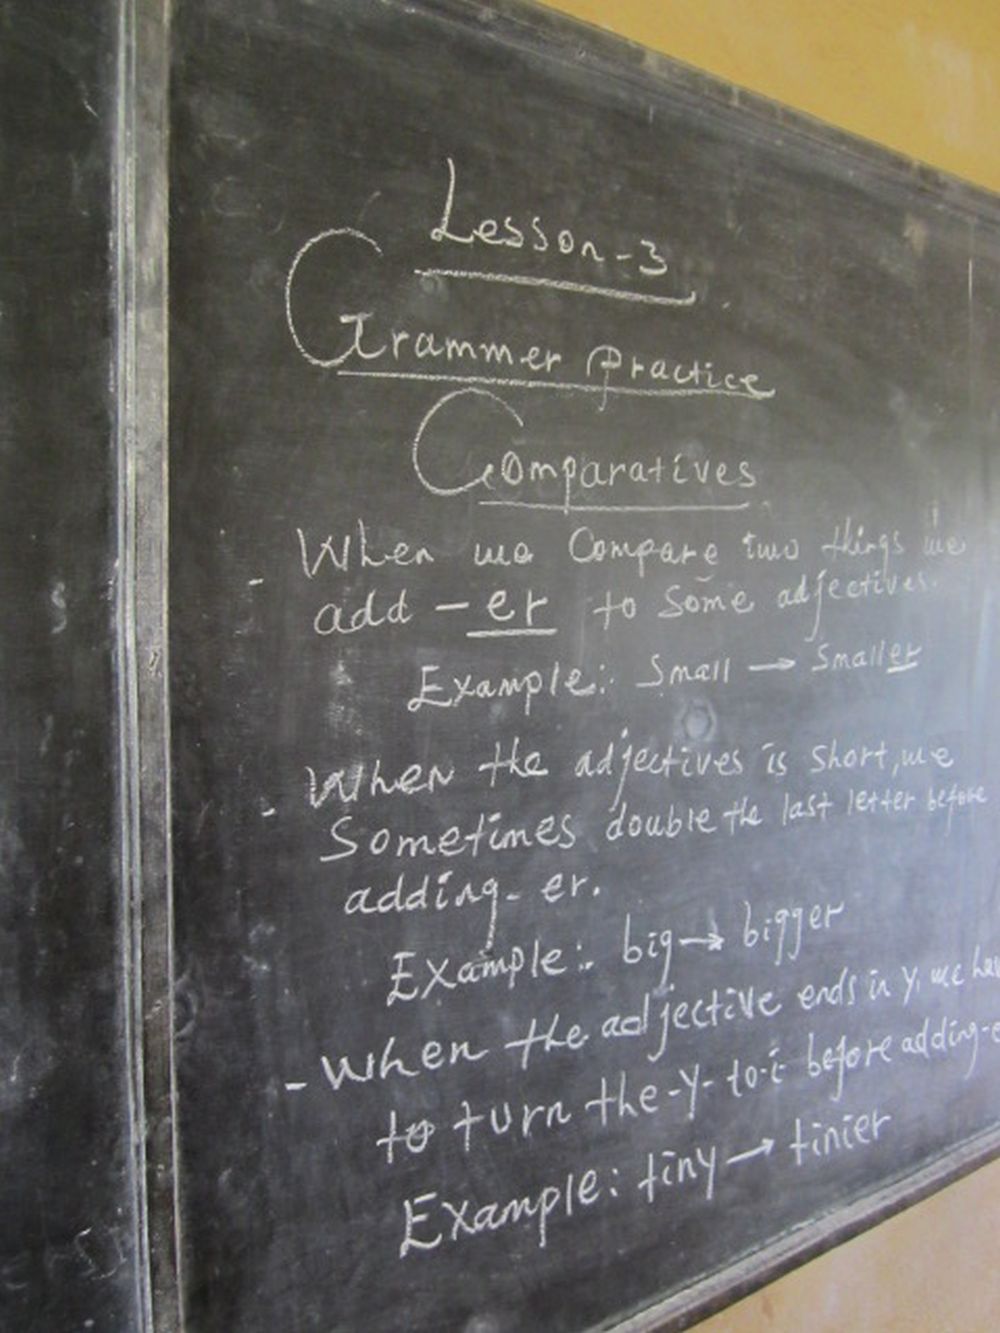 Lesson-3
Grammer Practice
Comparatives
- When we Compare two things we
add -er to Some adjectives.
Example: Small → Smaller
- When the adjectives is short, we
Sometimes double the last letter before
adding - er.
Example: big → bigger
- When the adjective ends in y, we hav
to turn the -y- to -i- before adding -e
Example: tiny → tinier